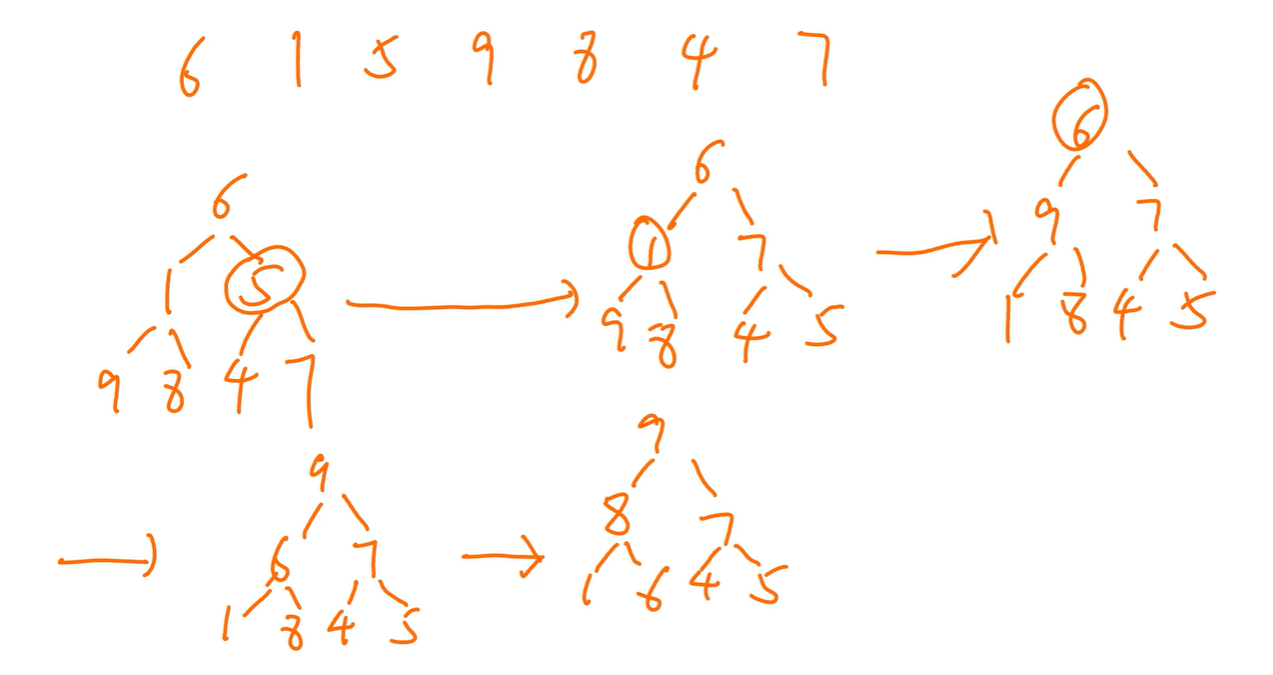 6 1 5 9 8 4 7
6
1 5
9 8 4 7
6
1 7
9 8 4 5
6
9 7
1 8 4 5
9
6 7
1 8 4 5
9
8 7
1 6 4 5